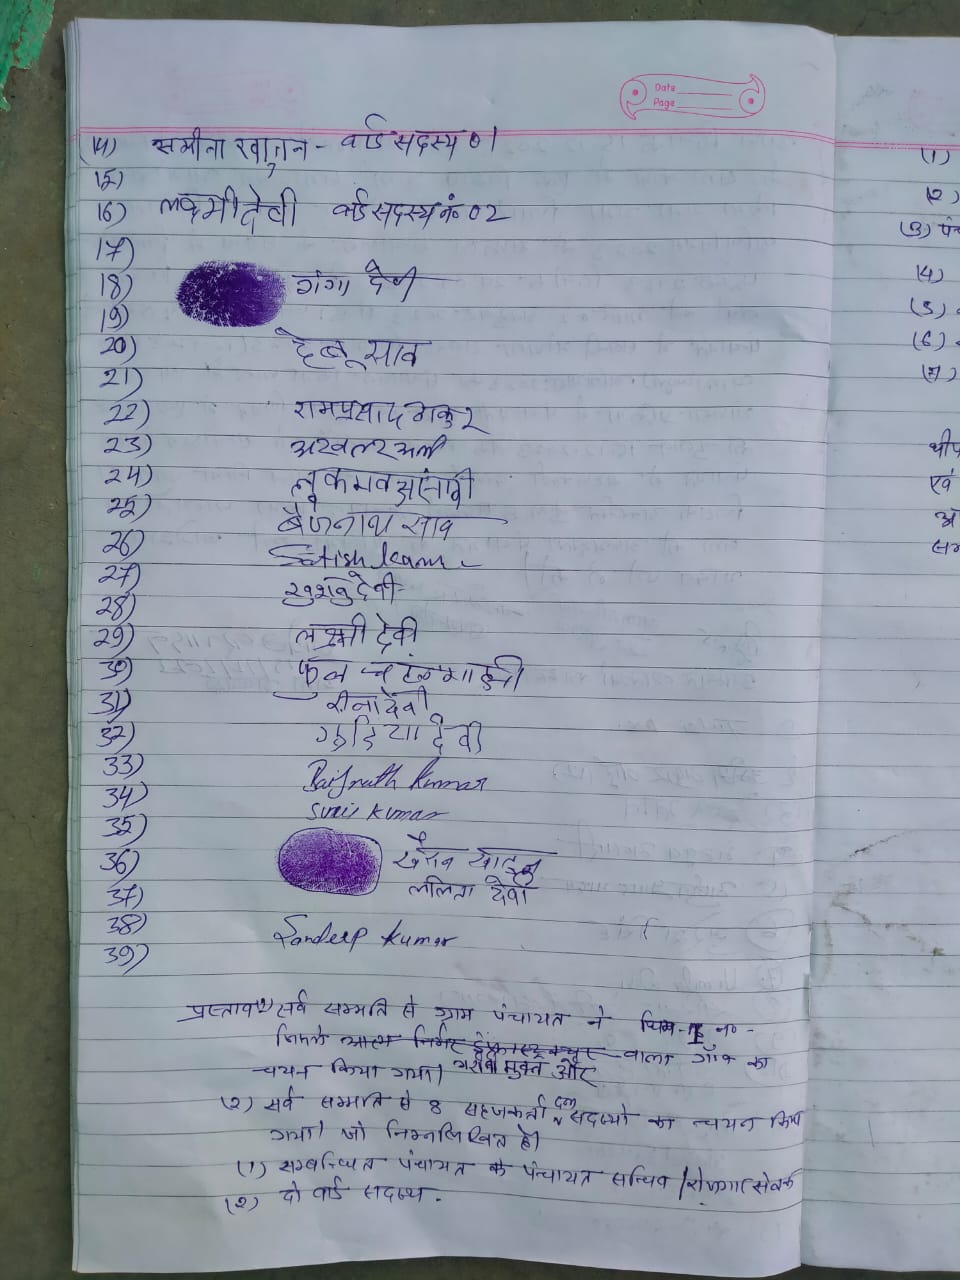 Date
Page
(14) समीना खातुन - वार्ड सदस्य 01
15)
16) लक्ष्मी देवी वार्ड सदस्य नं 02
17)
18) गंगा देवी
19)
20) देबू साव
21)
22) रामप्रसाद ठाकुर
23) अखतर अली
24) अंसारी
25) बैजनाथ साव
26) Satish Kumar
27) देवी
28)
29) लक्ष्मी देवी
30) फुल
31) रीना देवी
32) गुड़िया देवी
33) Baijnath Kumar
34) Kumar
35)
36) खातून
37) ललिता देवी
38)
39) Sandeep Kumar
प्रस्ताव सर्व सम्मति से ग्राम पंचायत ने थिम-
वाला गाँव का
चयन किया गया। गरीबी मुक्त और
(2) सर्व सम्मति से 8 सहजकर्ता दल सदस्यो का चयन किया
गया। जो निम्नलिखित है।
(1) सम्बन्धित पंचायत के पंचायत सचिव / रोजगार सेवक
(2) दो वार्ड सदस्य.
(1)
(2)
(3) पंच
(4)
(5)
(6)
(7)
एवं